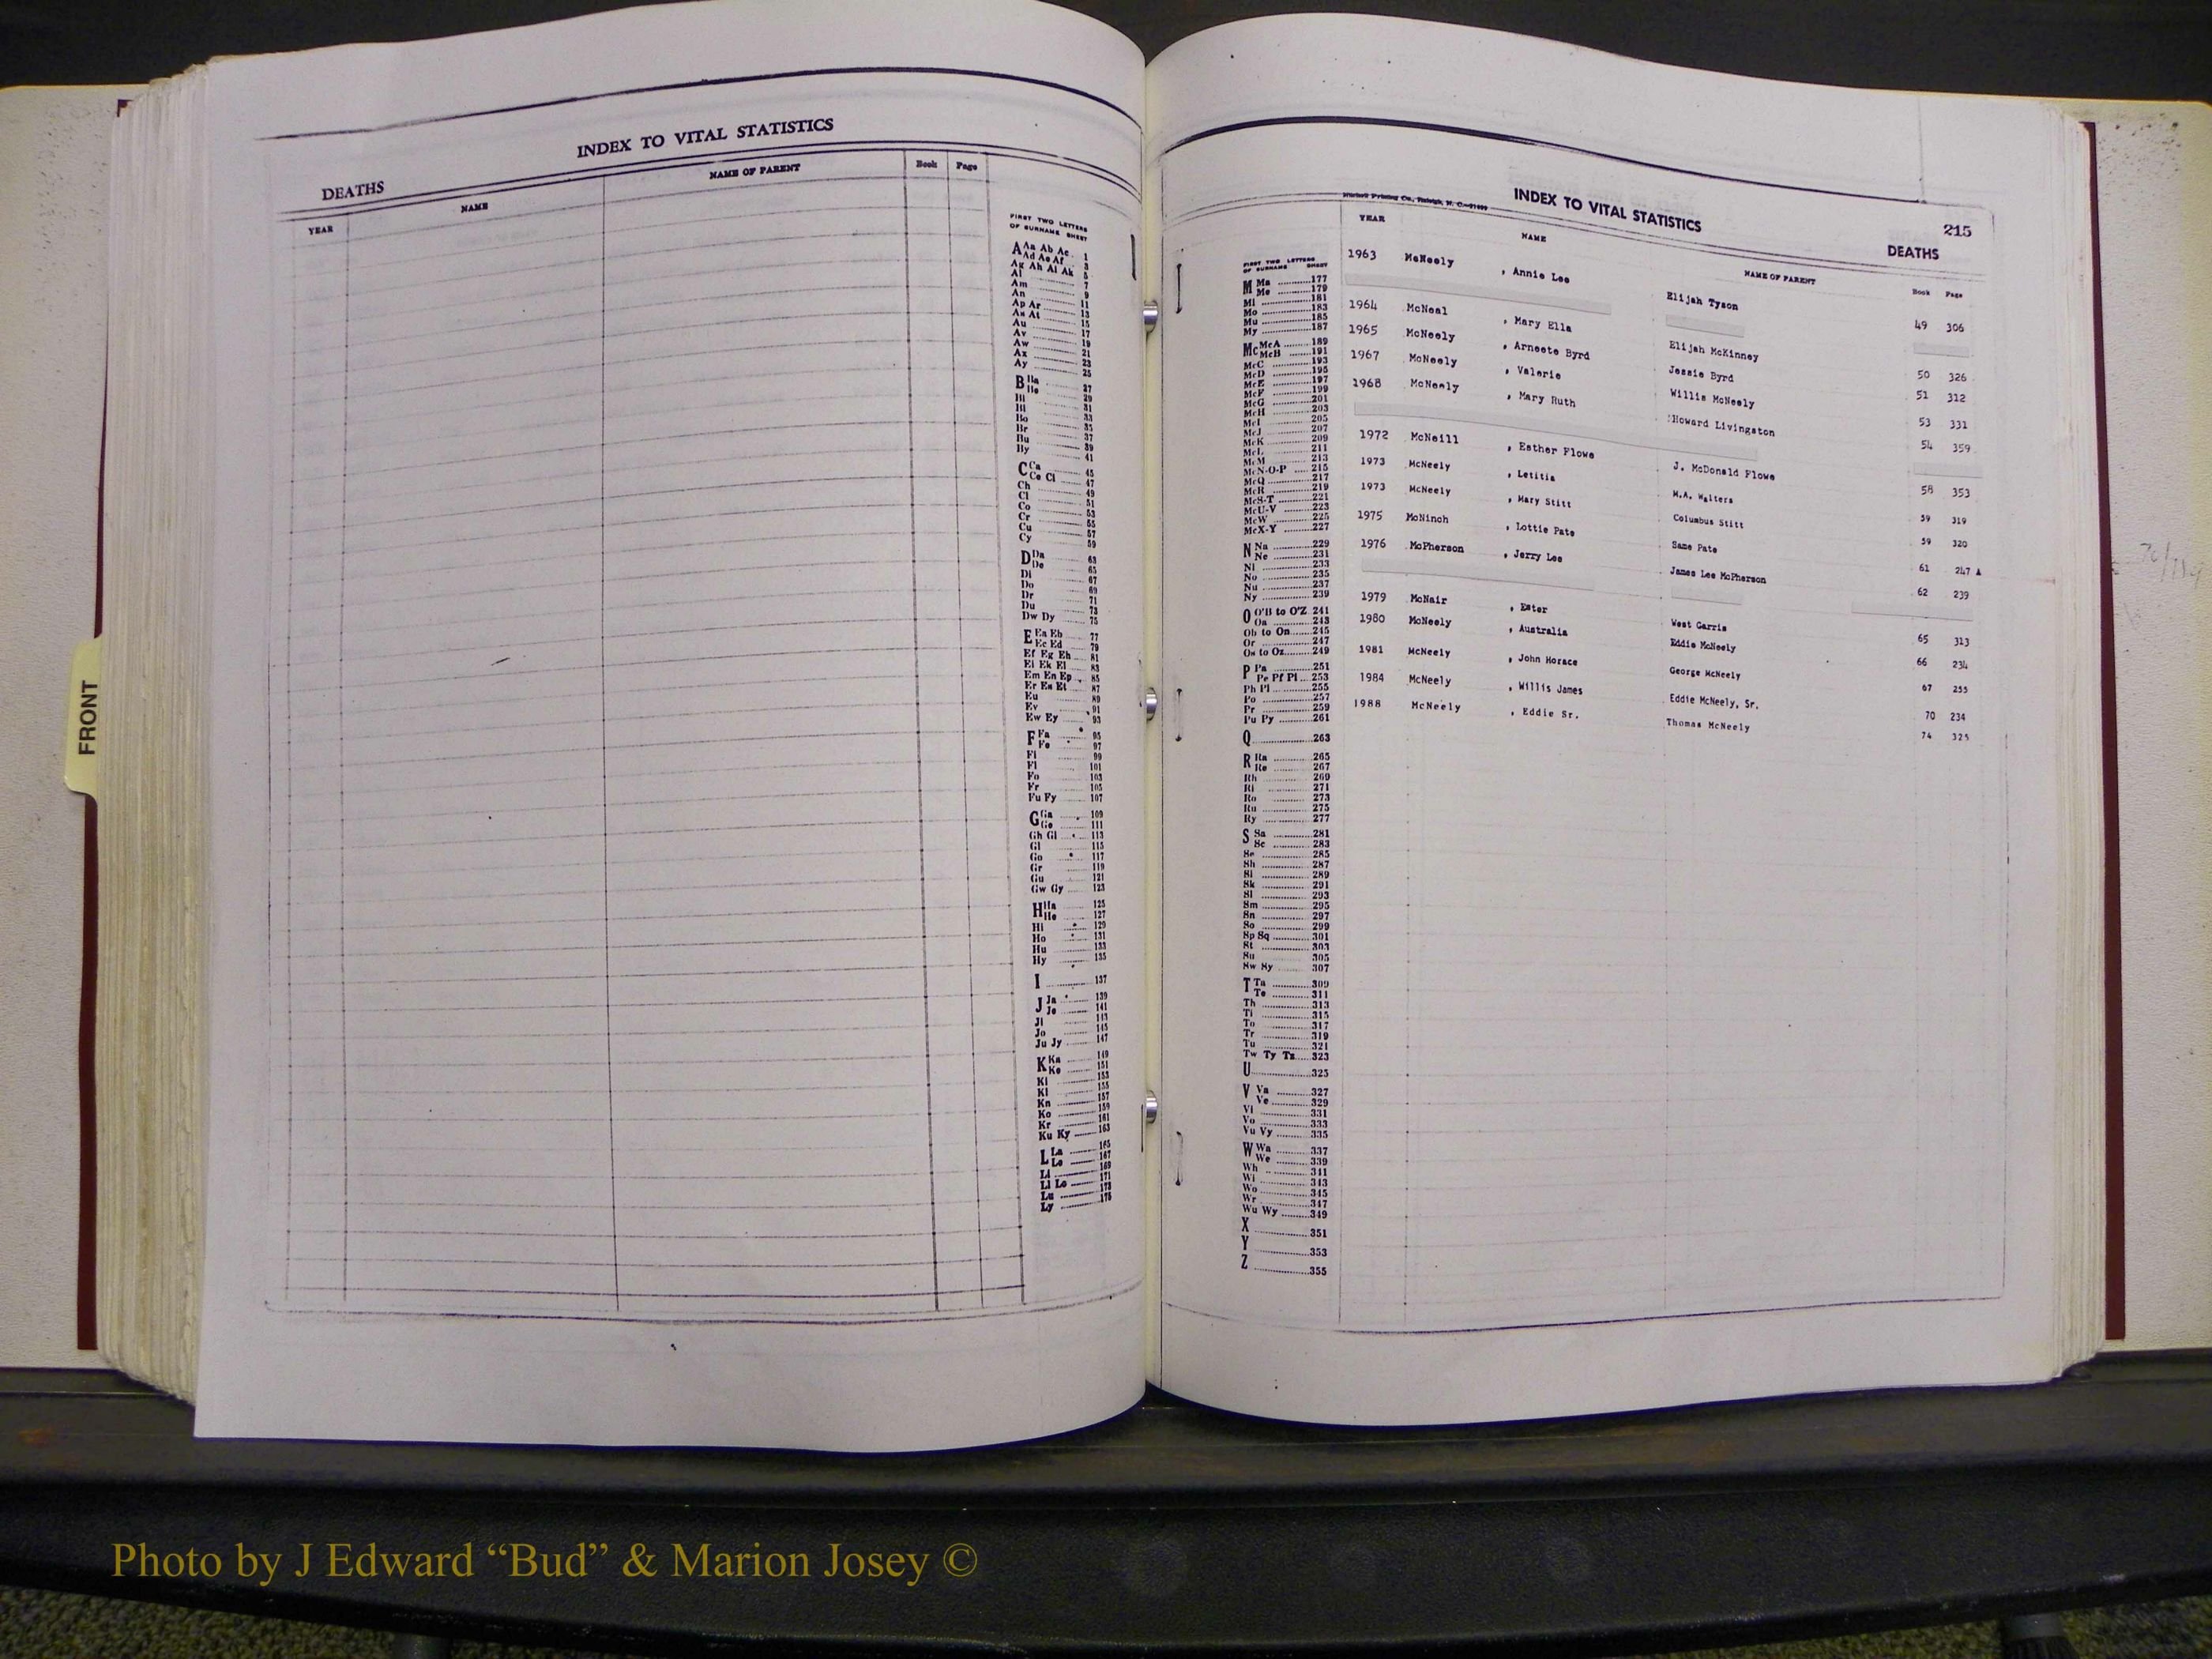 FRONT
INDEX TO VITAL STATISTICS
DEATHS
YEAR NAME NAME OF PARENT Book Page
FIRST TWO LETTERS
OF SURNAME SHEET
A Aa Ab Ac 1
Ad Ae Af 3
Ag Ah Ai Ak 5
Al 7
Am 9
An 11
Ap Ar 13
As At 15
Au 17
Av 19
Aw 21
Ax 23
Ay 25
B Ba 27
Be 29
Bi 31
Bl 33
Bo 35
Br 37
Bu 39
By 41
C Ca 45
Ce Ci 47
Ch 49
Cl 51
Co 53
Cr 55
Cu 57
Cy 59
D Da 63
De 65
Di 67
Do 69
Dr 71
Du 73
Dw Dy 75
E Ea Eb 77
Ec Ed 79
Ef Eg Eh 81
Ei Ek El 83
Em En Ep 85
Er Es Et 87
Eu 89
Ev 91
Ew Ey 93
F Fa 95
Fe 97
Fi 99
Fl 101
Fo 103
Fr 105
Fu Fy 107
G Ga 109
Ge 111
Gh Gi 113
Gl 115
Go 117
Gr 119
Gu 121
Gw Gy 123
H Ha 125
He 127
Hi 129
Ho 131
Hu 133
Hy 135
I 137
J Ja 139
Je 141
Ji 143
Jo 145
Ju Jy 147
K Ka 149
Ke 151
Ki 153
Kl 155
Kn 157
Ko 159
Kr 161
Ku Ky 163
L La 165
Le 167
Li 169
Ll Lo 171
Lu 173
Ly 175
INDEX TO VITAL STATISTICS
215
DEATHS
YEAR NAME NAME OF PARENT Book Page
1963 McNeely , Annie Lee Elijah Tyson 49 306
1964 McNeal , Mary Ella Elijah McKinney 50 326
1965 McNeely , Arneete Byrd Jessie Byrd 51 312
1967 McNeely , Valerie Willis McNeely 53 331
1968 McNeely , Mary Ruth Howard Livingston 54 359
1972 McNeill , Esther Flowe J. McDonald Flowe 58 353
1973 McNeely , Letitia M.A. Walters 59 319
1973 McNeely , Mary Stitt Columbus Stitt 59 320
1975 McNinch , Lottie Pate Same Pate 61 247
1976 McPherson , Jerry Lee James Lee McPherson 62 239
1979 McNair , Ester West Garris 65 313
1980 McNeely , Australia Eddie McNeely 66 234
1981 McNeely , John Horace George McNeely 67 255
1984 McNeely , Willis James Eddie McNeely, Sr. 70 234
1988 McNeely , Eddie Sr. Thomas McNeely 74 325
FIRST TWO LETTERS
OF SURNAME SHEET
M Ma 177
Me 179
Mi 181
Mo 183
Mu 185
My 187
Mc McA 189
McB 191
McC 193
McD 195
McE 197
McF 199
McG 201
McH 203
McI 205
McJ 207
McK 209
McL 211
McM 213
McN-O-P 215
McQ 217
McR 219
McS-T 221
McU-V 223
McW 225
McX-Y 227
N Na 229
Ne 231
Ni 233
No 235
Nu 237
Ny 239
O O'B to O'Z 241
Oa 243
Ob to On 245
Or 247
Os to Oz 249
P Pa 251
Pe Pf Pi 253
Ph Pl 255
Po 257
Pr 259
Pu Py 261
Q 263
R Ra 265
Re 267
Rh 269
Ri 271
Ro 273
Ru 275
Ry 277
S Sa 281
Sc 283
Se 285
Sh 287
Si 289
Sk 291
Sl 293
Sm 295
Sn 297
So 299
Sp Sq 301
St 303
Su 305
Sw Sy 307
T Ta 309
Te 311
Th 313
Ti 315
To 317
Tr 319
Tu 321
Tw Ty Tz 323
U 325
V Va 327
Ve 329
Vi 331
Vo 333
Vu Vy 335
W Wa 337
We 339
Wh 341
Wi 343
Wo 345
Wr 347
Wu Wy 349
X 351
Y 353
Z 355
Photo by J Edward “Bud” & Marion Josey ©